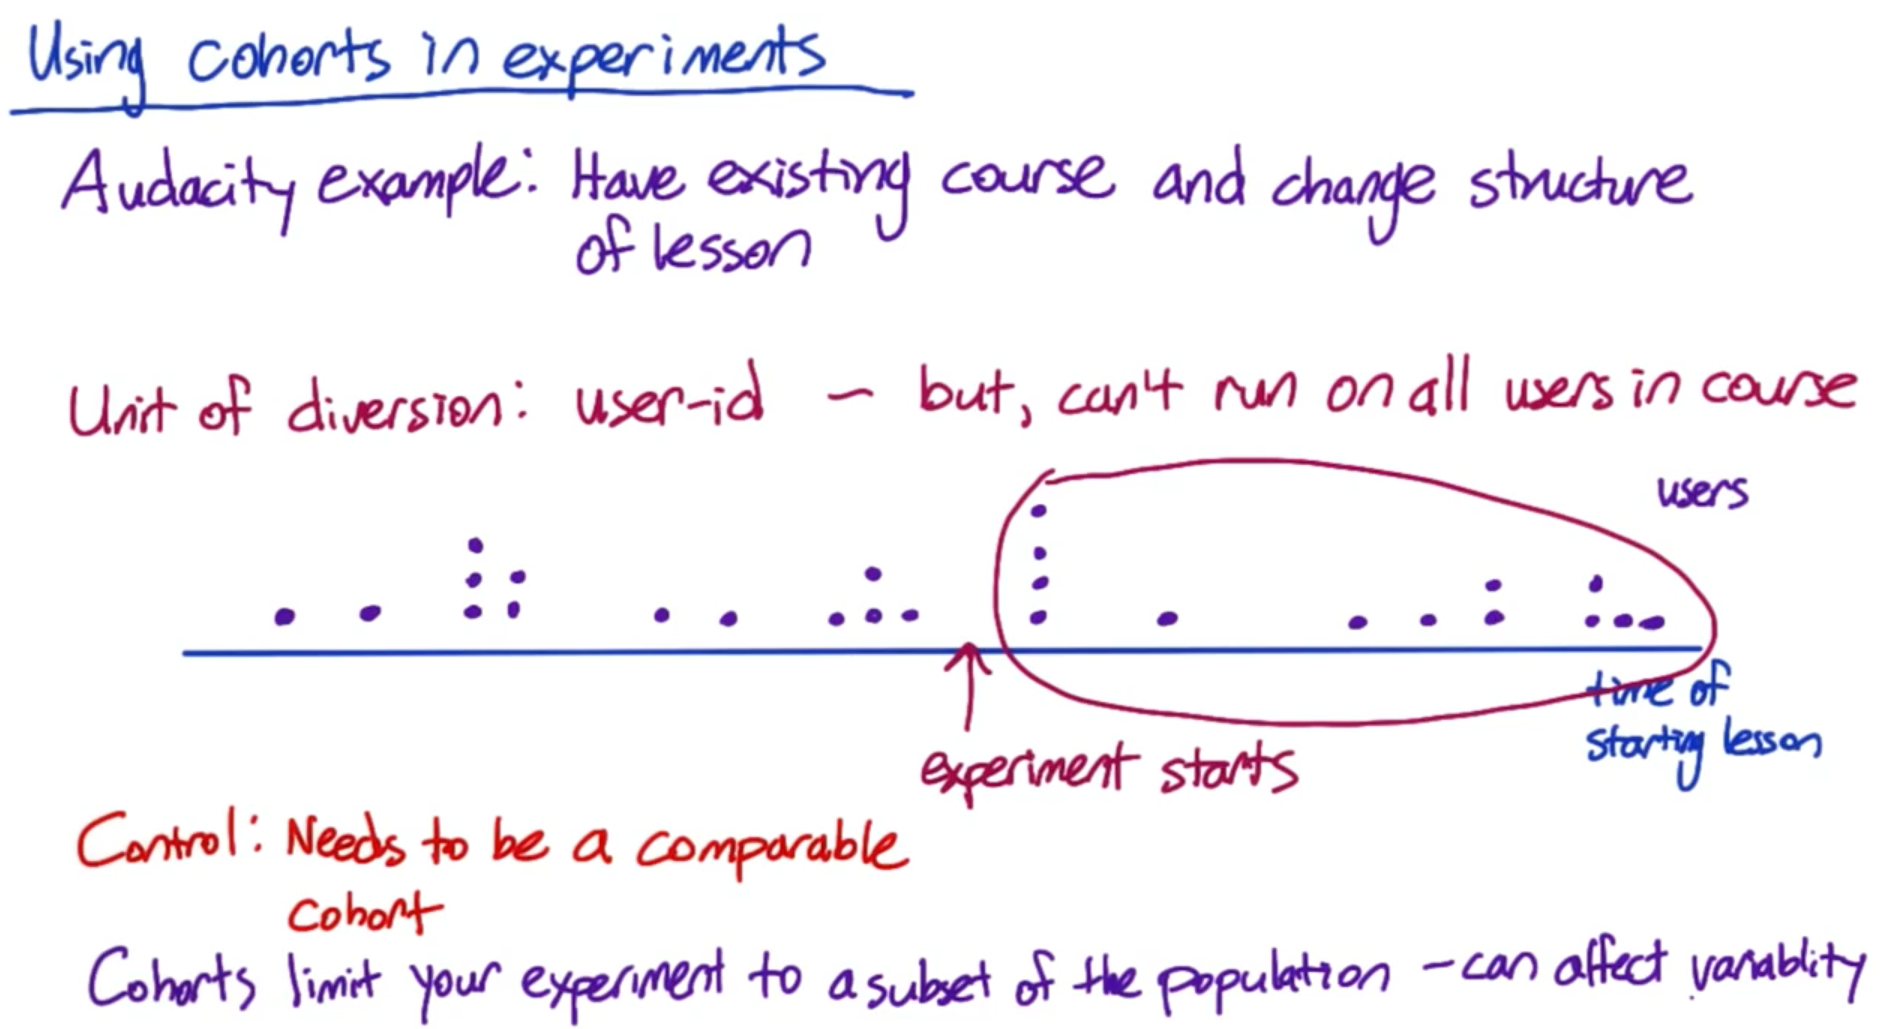 Using cohorts in experiments
Audacity example: Have existing course and change structure
of lesson
Unit of diversion: user-id – but, can't run on all users in course
users
time of
starting lesson
experiment starts
Control: Needs to be a comparable
cohort
Cohorts limit your experiment to a subset of the population – can affect variablity